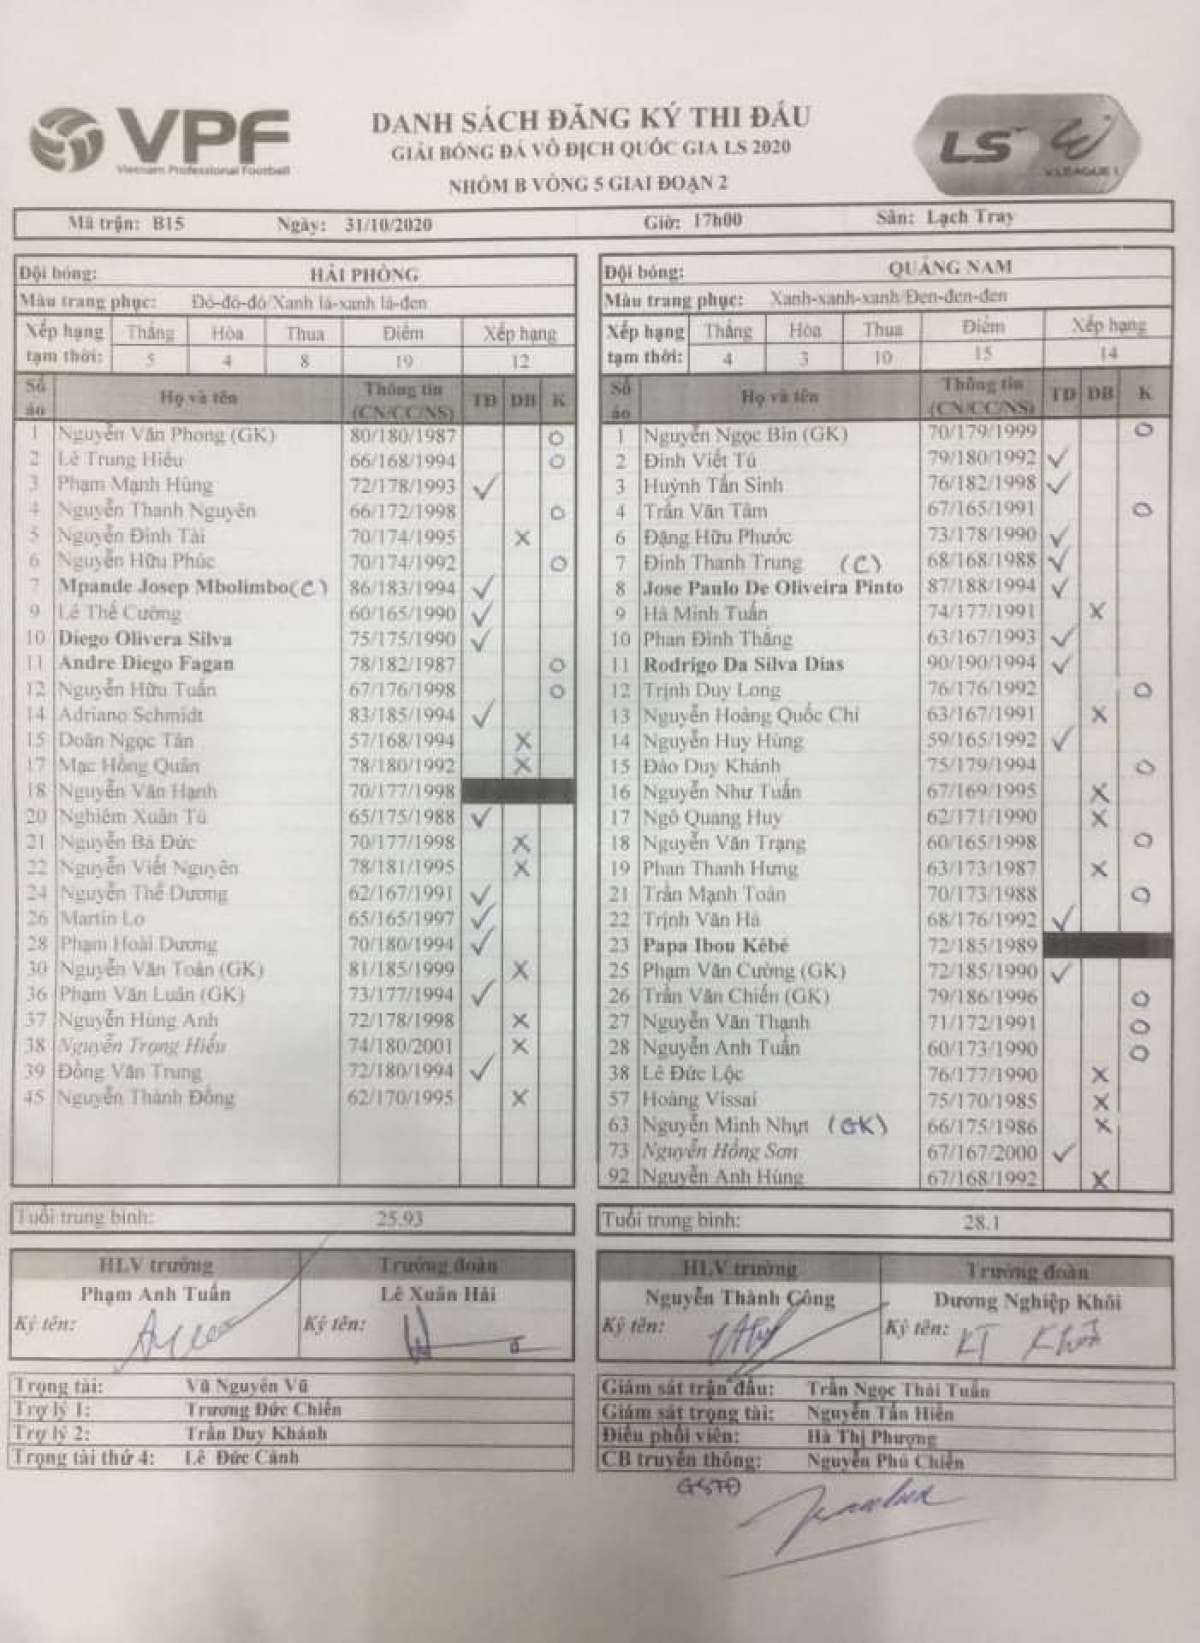 VPF
Vietnam Professional Football
DANH SÁCH ĐĂNG KÝ THI ĐẤU
GIẢI BÓNG ĐÁ VÔ ĐỊCH QUỐC GIA LS 2020
NHÓM B VÒNG 5 GIAI ĐOẠN 2
LS
V.LEAGUE 1
Mã trận: B15 Ngày: 31/10/2020 Giờ: 17h00 Sân: Lạch Tray
Đội bóng: HẢI PHÒNG
Màu trang phục: Đỏ-đỏ-đỏ/Xanh lá-xanh lá-đen
Xếp hạng tạm thời: Thắng Hòa Thua Điểm Xếp hạng
5 4 8 19 12
Số áo Họ và tên Thông tin (CN/CC/NS) TĐ DB K
1 Nguyễn Văn Phong (GK) 80/180/1987 O
2 Lê Trung Hiếu 66/168/1994 O
3 Phạm Mạnh Hùng 72/178/1993 ✓
4 Nguyễn Thanh Nguyên 66/172/1998 O
5 Nguyễn Đình Tài 70/174/1995 X
6 Nguyễn Hữu Phúc 70/174/1992 O
7 Mpande Josep Mbolimbo (C) 86/183/1994 ✓
9 Lê Thế Cường 60/165/1990 ✓
10 Diego Olivera Silva 75/175/1990 ✓
11 Andre Diego Fagan 78/182/1987 O
12 Nguyễn Hữu Tuấn 67/176/1998 O
14 Adriano Schmidt 83/185/1994 ✓
15 Doãn Ngọc Tân 57/168/1994 X
17 Mạc Hồng Quân 78/180/1992 X
18 Nguyễn Văn Hạnh 70/177/1998
20 Nghiêm Xuân Tú 65/175/1988 ✓
21 Nguyễn Bá Đức 70/177/1998 X
22 Nguyễn Viết Nguyên 78/181/1995 X
24 Nguyễn Thế Dương 62/167/1991 ✓
26 Martin Lo 65/165/1997 ✓
28 Phạm Hoài Dương 70/180/1994 ✓
30 Nguyễn Văn Toản (GK) 81/185/1999 X
36 Phạm Văn Luân (GK) 73/177/1994 ✓
37 Nguyễn Hùng Anh 72/178/1998 X
38 Nguyễn Trọng Hiếu 74/180/2001 X
39 Đồng Văn Trung 72/180/1994 ✓
45 Nguyễn Thành Đồng 62/170/1995 X
Tuổi trung bình: 25.93
HLV trưởng Trưởng đoàn
Phạm Anh Tuấn Lê Xuân Hải
Ký tên: Ký tên:
Trọng tài: Vũ Nguyên Vũ
Trợ lý 1: Trương Đức Chiến
Trợ lý 2: Trần Duy Khánh
Trọng tài thứ 4: Lê Đức Cảnh
Đội bóng: QUẢNG NAM
Màu trang phục: Xanh-xanh-xanh/Đen-đen-đen
Xếp hạng tạm thời: Thắng Hòa Thua Điểm Xếp hạng
4 3 10 15 14
Số áo Họ và tên Thông tin (CN/CC/NS) TĐ DB K
1 Nguyễn Ngọc Bin (GK) 70/179/1999 O
2 Đinh Viết Tú 79/180/1992 ✓
3 Huỳnh Tấn Sinh 76/182/1998 ✓
4 Trần Văn Tâm 67/165/1991 O
6 Đặng Hữu Phước 73/178/1990 ✓
7 Đinh Thanh Trung (C) 68/168/1988 ✓
8 Jose Paulo De Oliveira Pinto 87/188/1994 ✓
9 Hà Minh Tuấn 74/177/1991 X
10 Phan Đình Thắng 63/167/1993 ✓
11 Rodrigo Da Silva Dias 90/190/1994 ✓
12 Trịnh Duy Long 76/176/1992 O
13 Nguyễn Hoàng Quốc Chí 63/167/1991 X
14 Nguyễn Huy Hùng 59/165/1992 ✓
15 Đào Duy Khánh 75/179/1994 O
16 Nguyễn Như Tuấn 67/169/1995 X
17 Ngô Quang Huy 62/171/1990 X
18 Nguyễn Văn Trạng 60/165/1998 O
19 Phan Thanh Hưng 63/173/1987 X
21 Trần Mạnh Toàn 70/173/1988 O
22 Trịnh Văn Hà 68/176/1992 ✓
23 Papa Ibou Kébé 72/185/1989
25 Phạm Văn Cường (GK) 72/185/1990 ✓
26 Trần Văn Chiến (GK) 79/186/1996 O
27 Nguyễn Văn Thạnh 71/172/1991 O
28 Nguyễn Anh Tuấn 60/173/1990 O
38 Lê Đức Lộc 76/177/1990 X
57 Hoàng Vissai 75/170/1985 X
63 Nguyễn Minh Nhựt (GK) 66/175/1986 X
73 Nguyễn Hồng Sơn 67/167/2000 ✓
92 Nguyễn Anh Hùng 67/168/1992 X
Tuổi trung bình: 28.1
HLV trưởng Trưởng đoàn
Nguyễn Thành Công Dương Nghiệp Khôi
Ký tên: Ký tên: KT Khôi
Giám sát trận đấu: Trần Ngọc Thái Tuấn
Giám sát trọng tài: Nguyễn Tấn Hiền
Điều phối viên: Hà Thị Phượng
CB truyền thông: Nguyễn Phú Chiến
GSTĐ